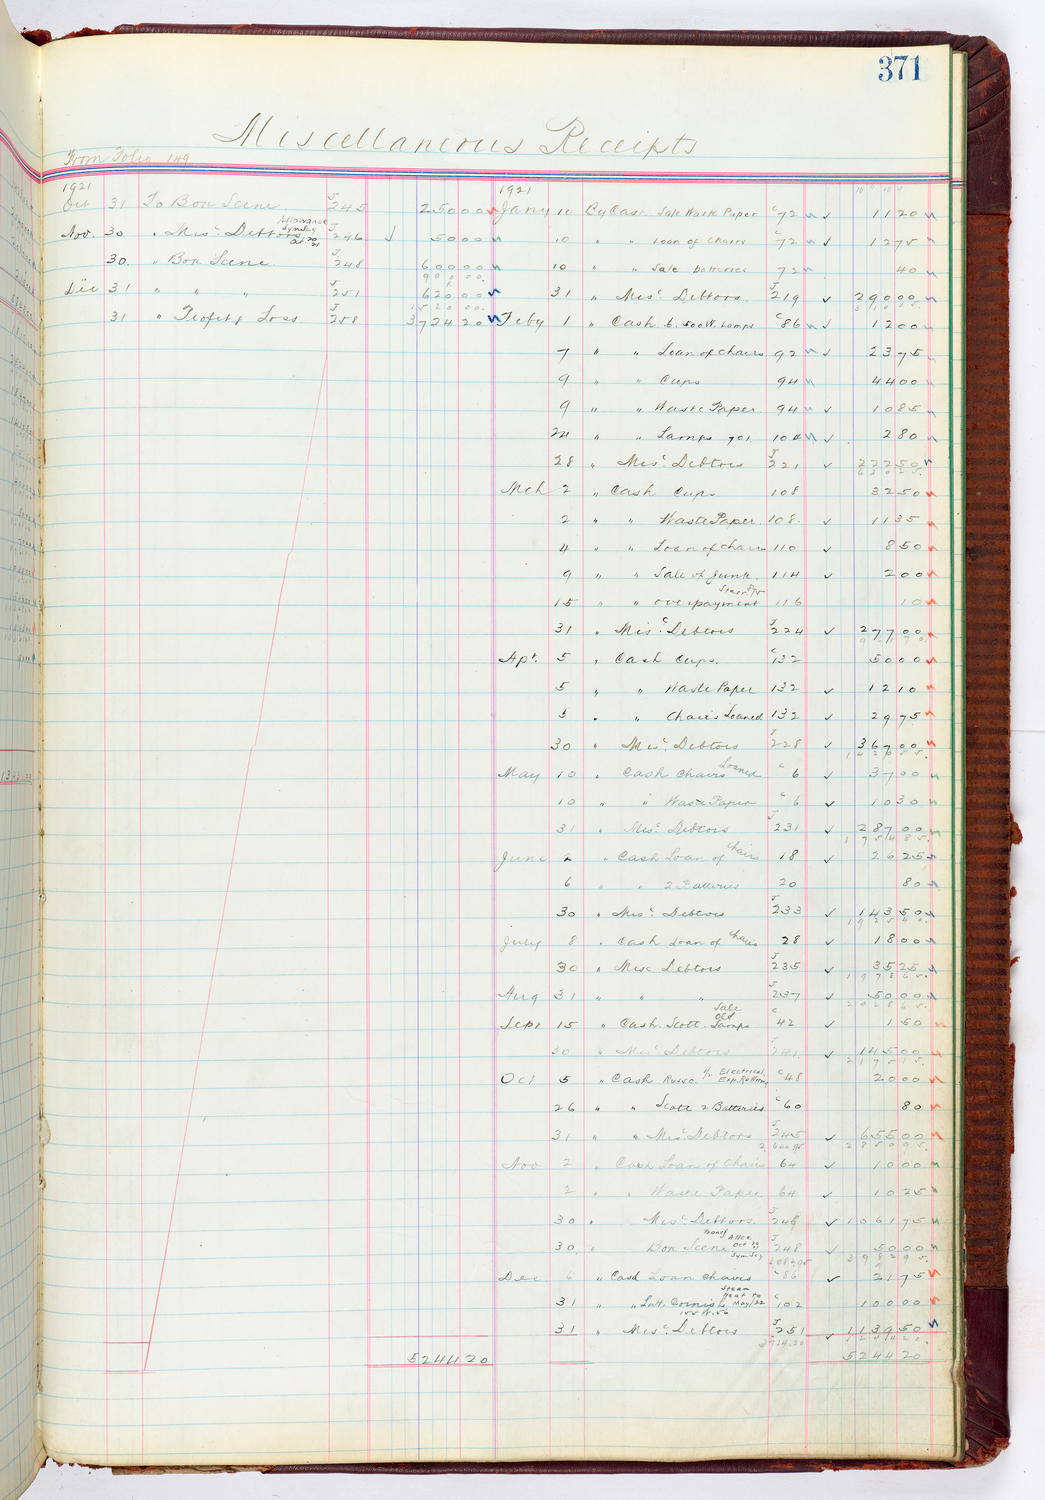 371
Miscellaneous Receipts
From Folio 149
1921
Oct 31 To Box Scene J 245 250 00
Nov. 30 " Misc Debtors Allowance Symsey Oct 20 21 J 246 √ 50 00
30. " Box Scene J 248 600 00
900 00.
Dec 31 " " " J 251 620 00
1520 00.
31 " Profit & Loss J 258 3724 20
5244 20
1921
Jany 10 By Cash Sale Waste Paper C 72 √ 11 20
10 " " Loan of Chairs C 72 √ 12 75
10 " " Sale batteries 72 40
31 " Misc Debtors J 219 √ 290 00
Feby 1 " Cash 6. 500 W. Lamps C 86 √ 12 00
7 " " Loan of Chairs 92 √ 23 75
9 " " Cups 94 44 00
9 " " Waste Paper 94 √ 10 85
24 " " Lamps 701 104 √ 2 80
28 " Misc Debtors J 221 √ 222 50
Mch 2 " Cash Cups 108 32 50
2 " " Waste Paper 108. √ 11 35
4 " " Loan of Chairs 110 √ 8 50
9 " " Sale of Junk. 114 √ 2 00
15 " " overpayment 116 10
31 " Misc Debtors J 224 √ 277 00
Apr. 5 " Cash Cups. C 132 50 00
5 " " Waste Paper 132 √ 12 10
5 " " Chairs Loaned 132 √ 29 75
30 " Misc Debtors J 228 √ 367 00
1426 55.
May 10 " Cash Chairs Loaned C 6 √ 37 00
10 " " Waste Paper C 6 √ 10 30
31 " Misc Debtors J 231 √ 287 00
1754 85.
June 2 " Cash Loan of Chairs 18 √ 26 25
6 " " 2 Batteries 20 80
30 " Misc Debtors J 233 √ 143 50
1925 40.
July 8 " Cash Loan of Chairs 28 √ 18 00
30 " Misc Debtors J 235 √ 35 25
1978 65.
Aug 31 " " " J 237 √ 50 00
2028 65.
Sept 15 " Cash. Scott. Sale Old Lamps C 42 √ 1 50
30 " Misc Debtors J 241 √ 145 00
2175 15.
Oct 5 " Cash Russo. Electrical C 48 20 00
26 " " Scott 2 Batteries C 60 80
31 " " Misc Debtors J 245 √ 655 00
2850 95.
Nov 2 " Cash Loan of Chairs 64 10 00
2 " " Waste Paper 64 √ 10 25
30 " Misc Debtors J 248 √ 1061 75
30 " Box Scene Transf Allce Oct 20 21 Symsey J 248 √ 50 00
3982 95.
Dec 6 " Cash Loan Chairs C 86 √ 21 75
31 " " L. H. Cornish Steam Heat to May/22 155 W. 56 C 102 100 00
31 " Misc Debtors J 251 √ 1139 50
3724.20
5244 20